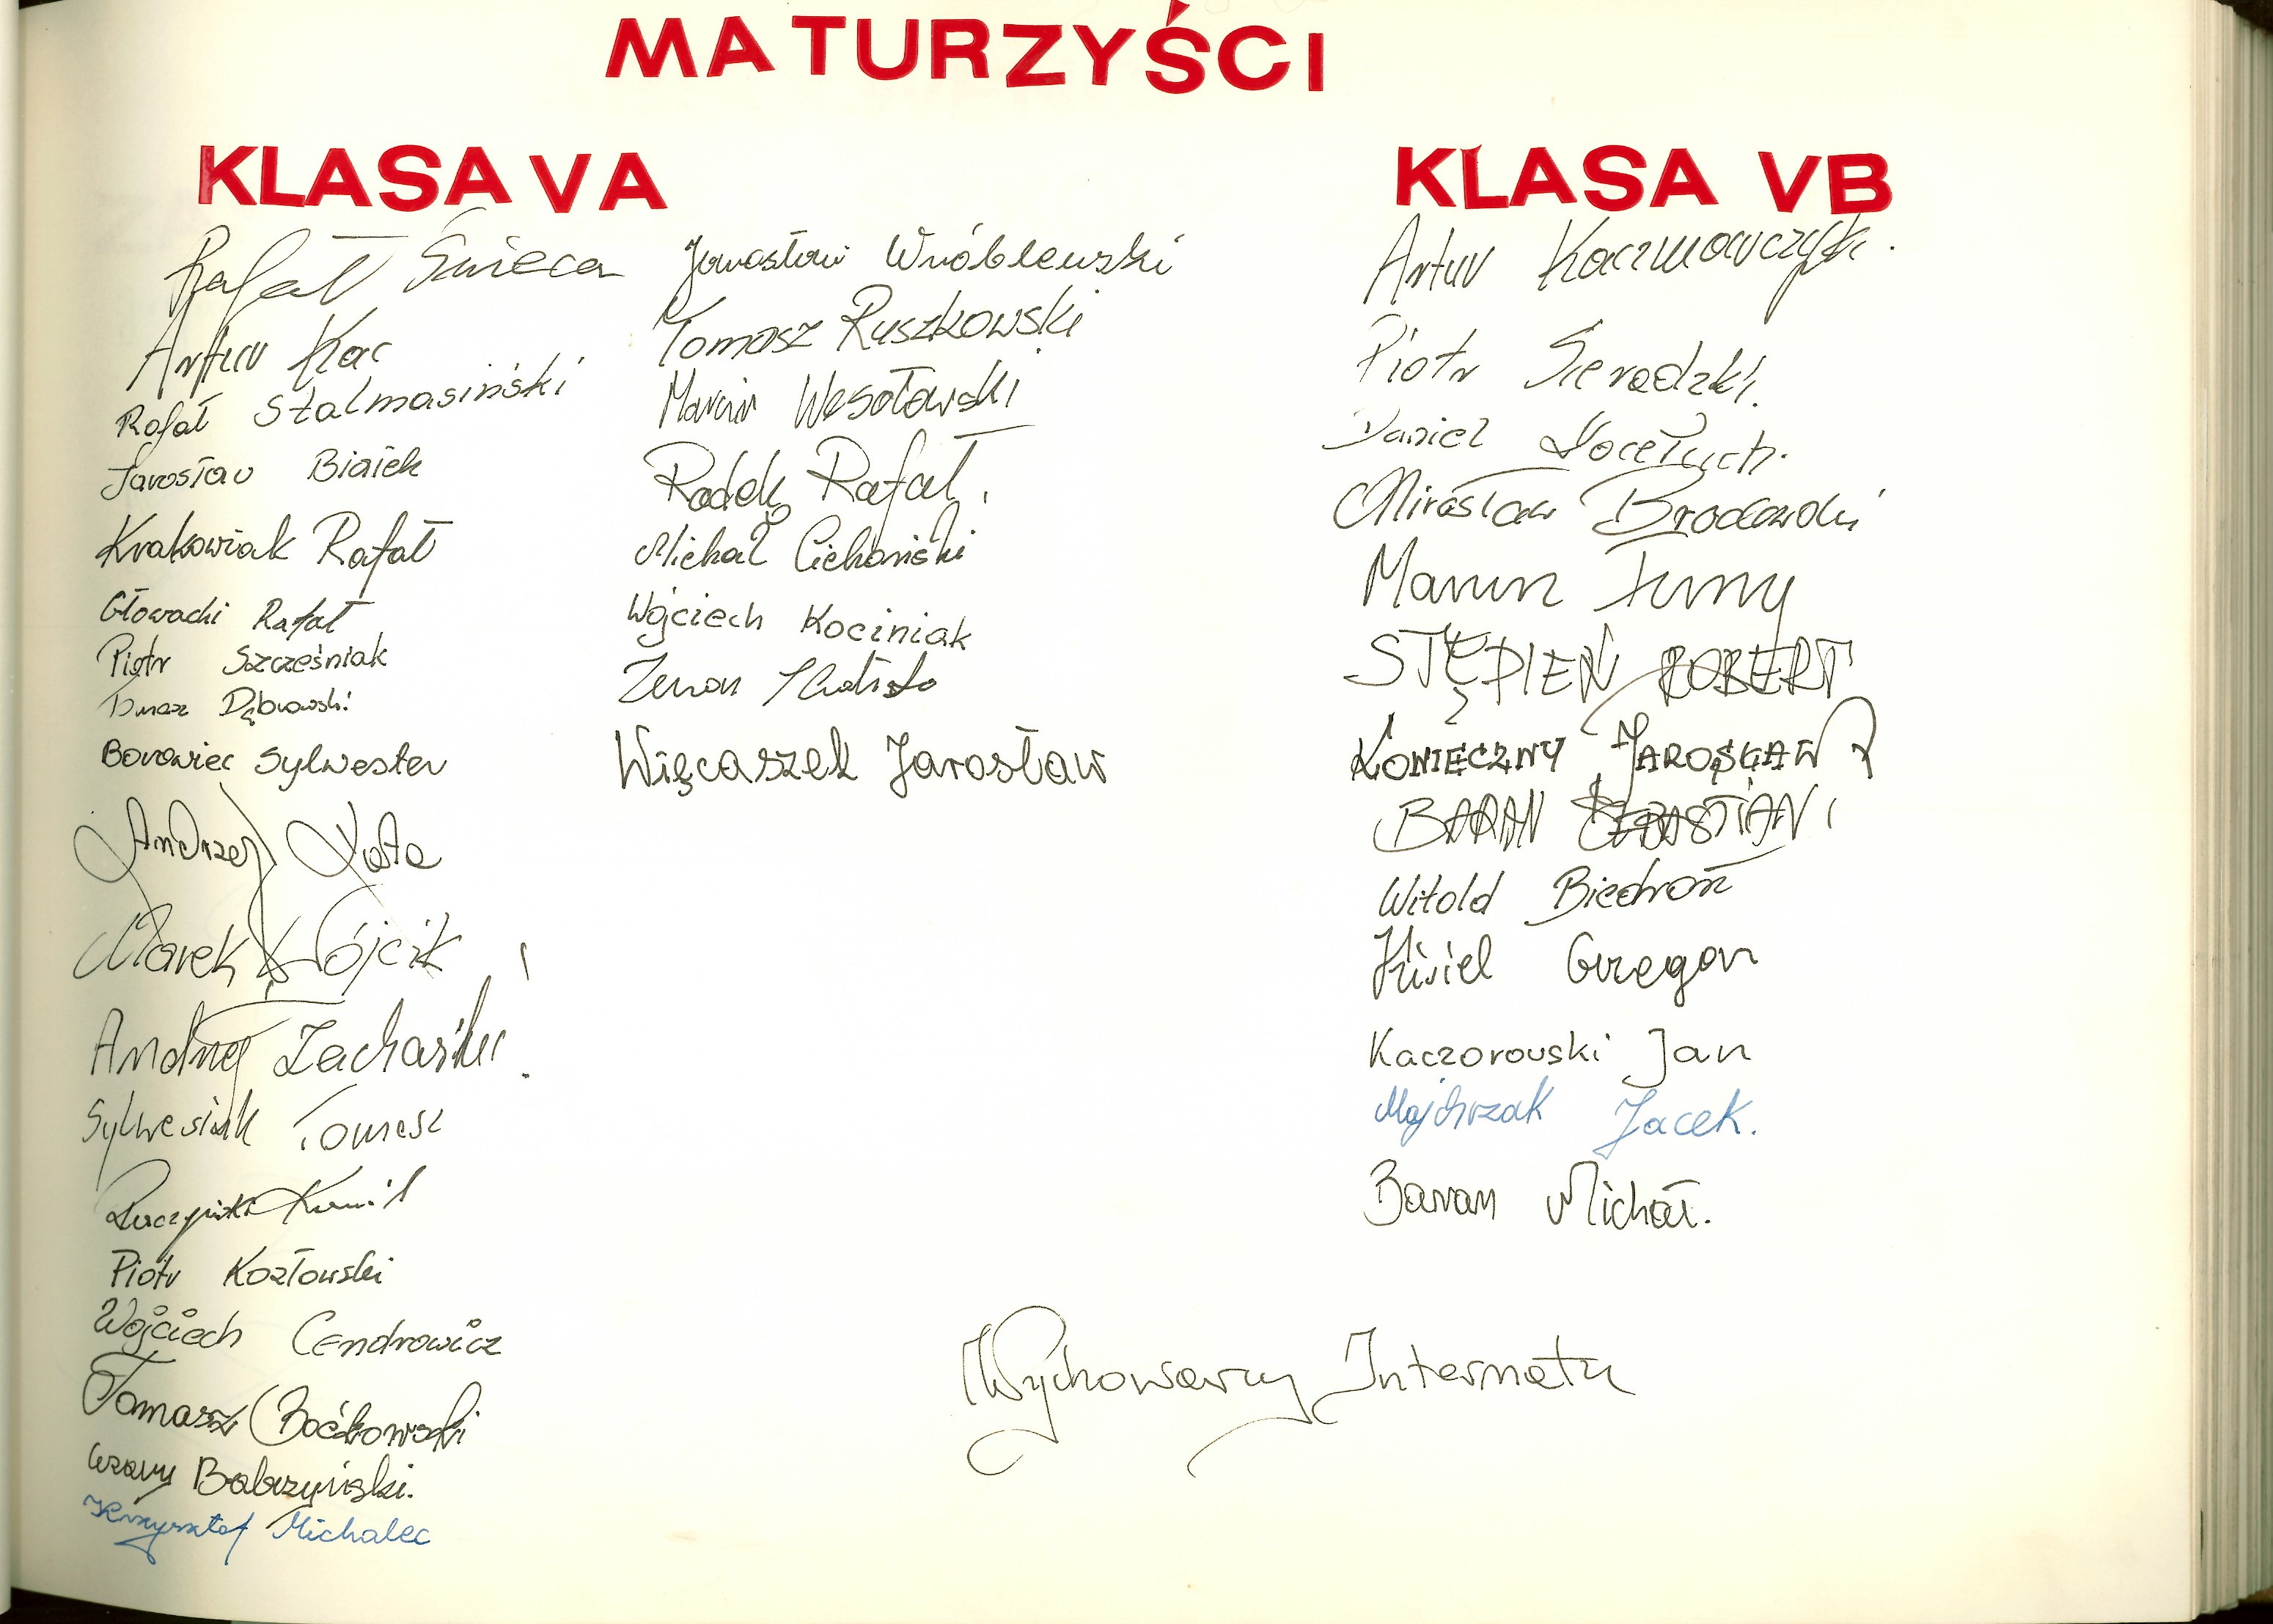 MATURZYŚCI
KLASA VA
Rafał Świeca
Artur Kac
Rafał Stalmasiński
Jarosław Białek
Krakowiak Rafał
Głowacki Rafał
Piotr Szcześniak
Tomasz Dąbrowski
Borowiec Sylwester
Andrzej
Marek Wójcik
Andrzej Zachariski
Sylwesiak Tomasz
Kamil
Piotr Kozłowski
Wojciech Cendrowicz
Tomasz Boćkowski
Cezary Babrzyński.
Krzysztof Michalec
Jarosław Wróblewski
Tomasz Ruszkowski
Marcin Wesołowski
Radek Rafał.
Michał Ciechański
Wojciech Kociniak
Zenon
Więcaszek Jarosław
KLASA VB
Artur Kaczmarczyk.
Piotr Sieradzki.
Daniel
Mirosław Brodowski
Marcin
STĘPIEŃ ROBERT
KONIECZNY JAROSŁAW
BARAN SEBASTIAN
Witold Biedroń
Kisiel Grzegorz
Kaczorowski Jan
Majchrzak Jacek.
Baran Michał.
Wychowawcy Internatu